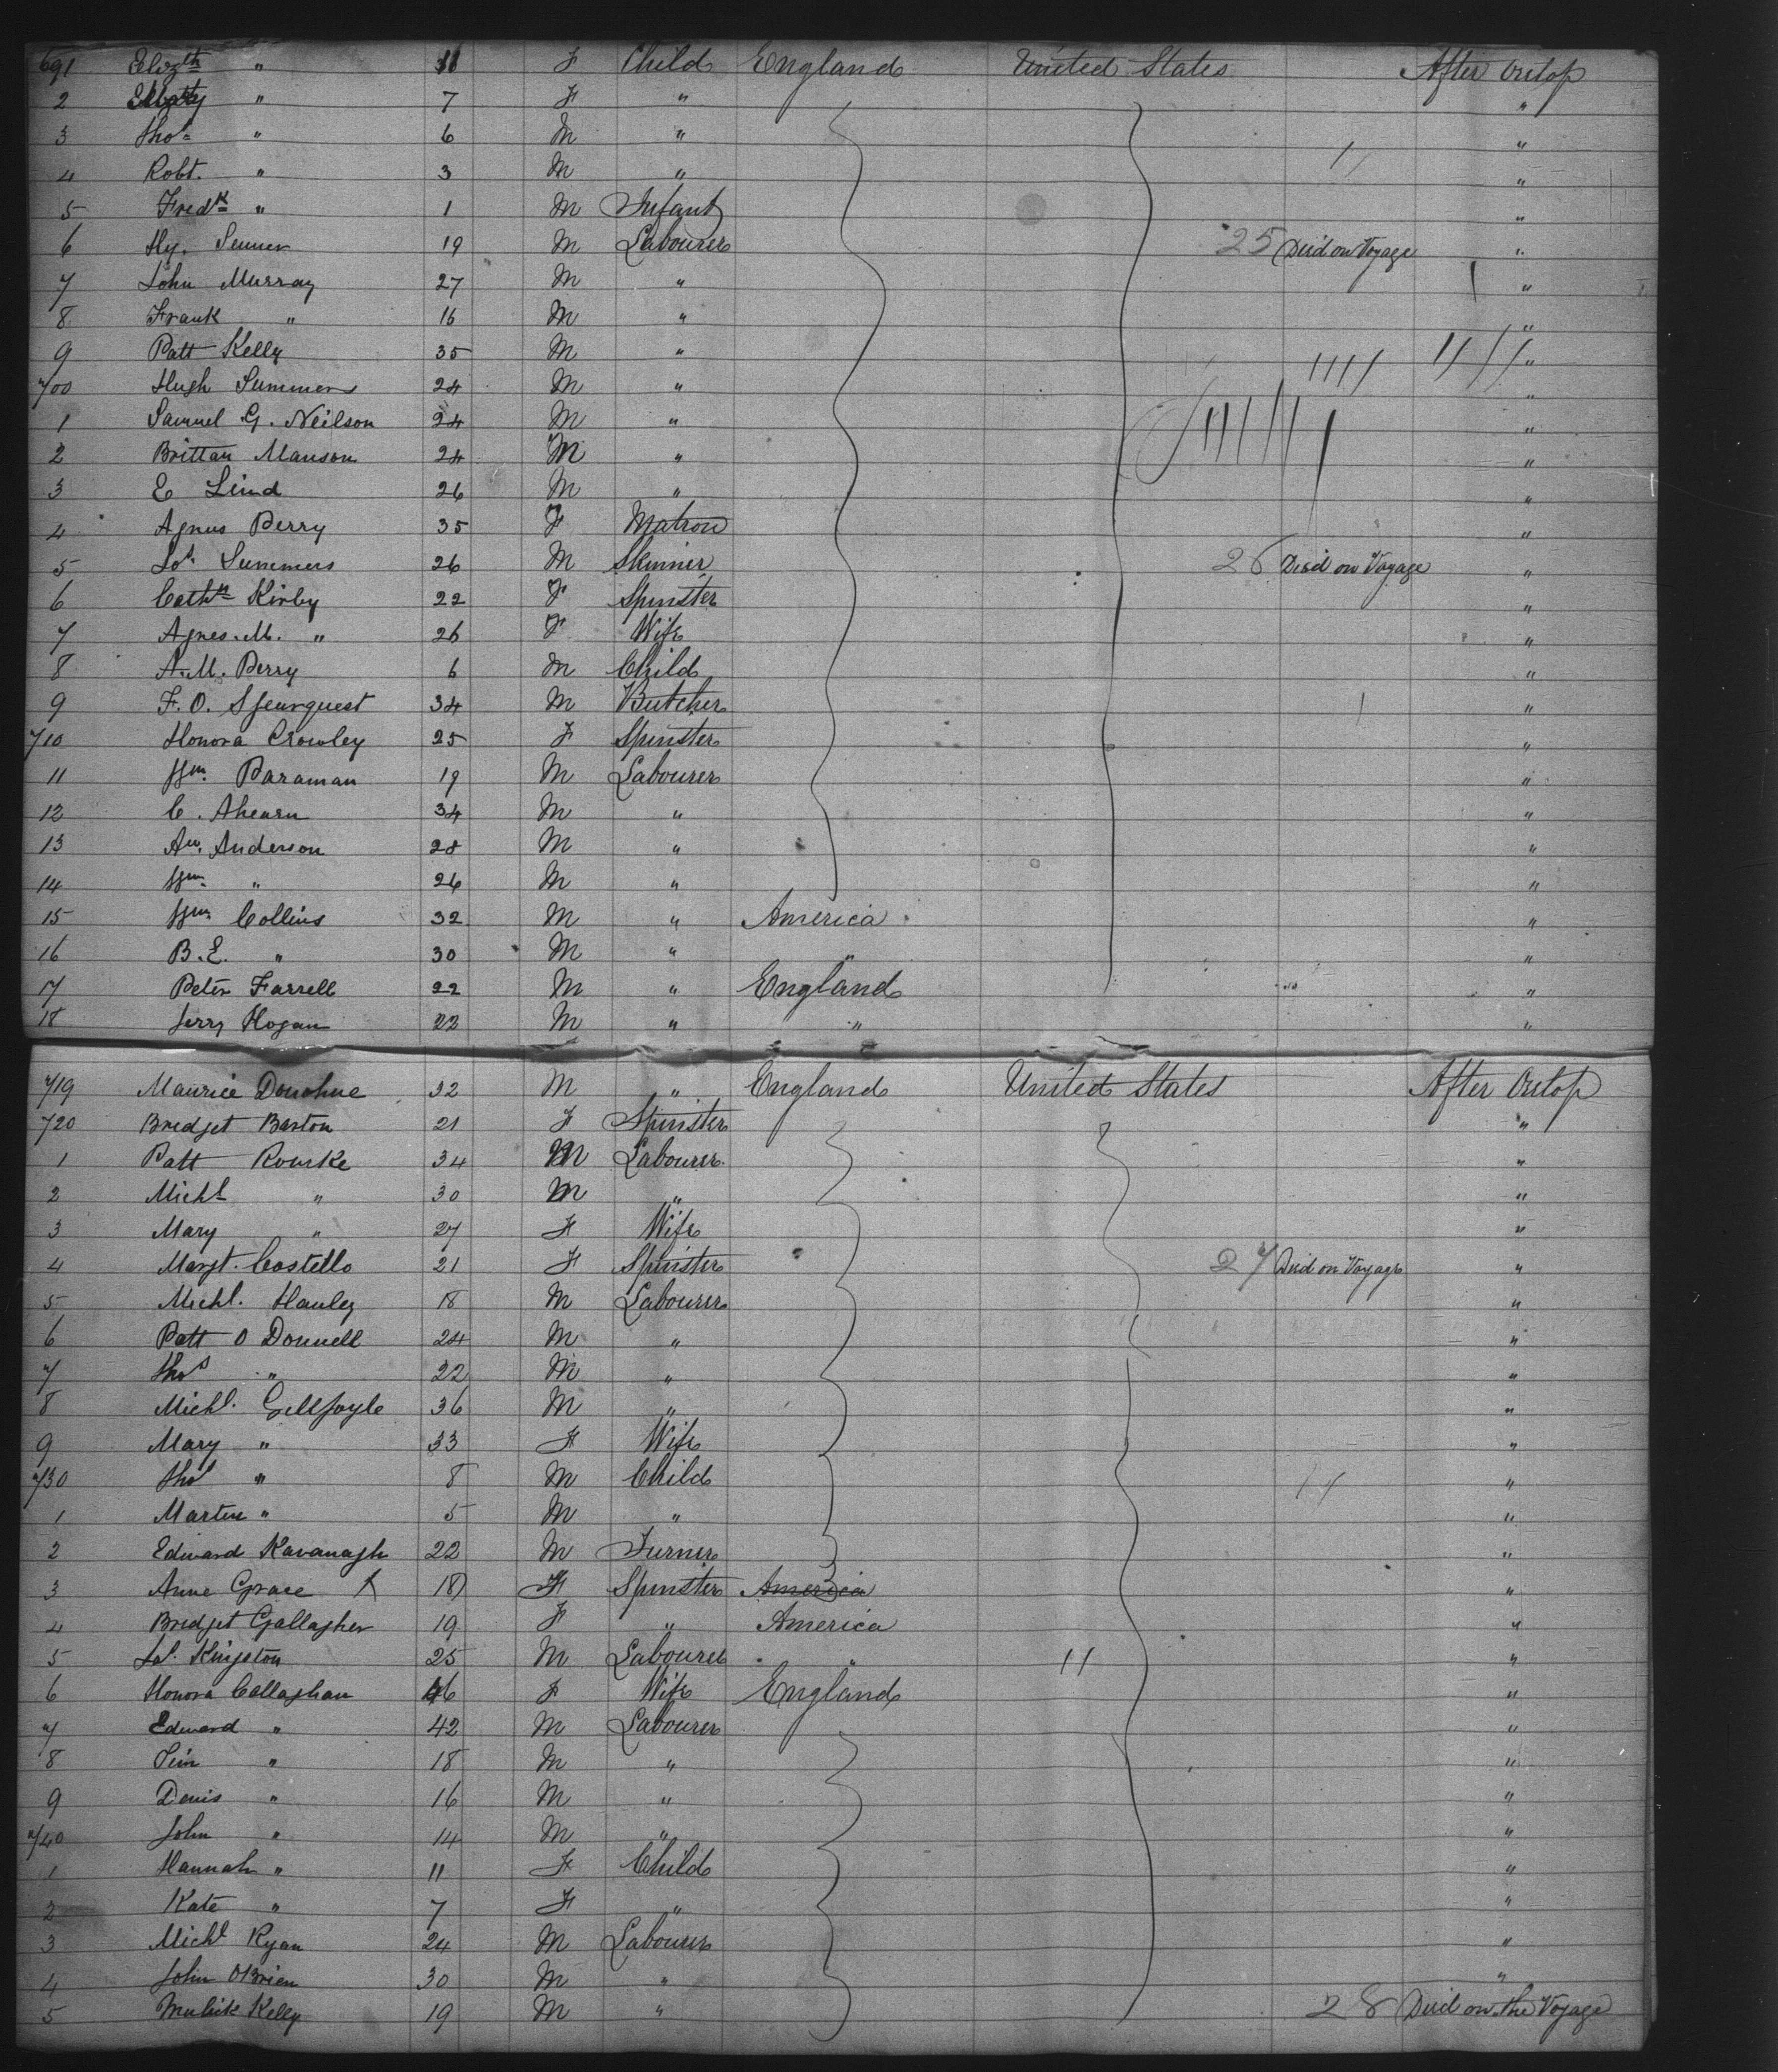 691 Elizth " 11 F Child England United States After Orlop
2 " 7 F " "
3 Thos " 6 M " "
4 Robt. " 3 M " "
5 Fredk " 1 M Infant "
6 Hy. Senner 19 M Labourer 25 Died on Voyage "
7 John Murray 27 M " "
8 Frank " 16 M " "
9 Patt Kelly 35 M " "
700 Hugh Summers 24 M " "
1 Samuel G. Neilson 24 M " "
2 Brittan Manson 24 M " "
3 E Lind 26 M " "
4 Agnus Perry 35 F Matron "
5 Summers 26 M Skinner 26 Died on Voyage "
6 Cathn Kirby 22 F Spinster "
7 Agnes. M. " 26 F Wife "
8 A. M. Perry 6 M Child "
9 F. O. 34 M Butcher "
710 Honora Crowley 25 F Spinster "
11 Wm. Paraman 19 M Labourer "
12 C. Ahearn 34 M " "
13 Aw. Anderson 28 M " "
14 Wm. " 26 M " "
15 Wm Collins 32 M " America "
16 B. E. " 30 M " " "
17 Peter Farrell 22 M " England "
18 Jerry Hogan 22 M " " "
719 Maurice Donohue 32 M " England United States After Orlop
720 Bridget Barton 21 F Spinster "
1 Patt Rourke 34 M Labourer "
2 Michl " 30 M " "
3 Mary " 27 F Wife "
4 Margt. Costello 21 F Spinster 27 Died on Voyage "
5 Michl. Hanley 18 M Labourer "
6 Patt O Donnell 24 M " "
7 Thos " 22 M " "
8 Michl. Gillfoyle 36 M " "
9 Mary " 33 F Wife "
730 Thos " 8 M Child "
1 Martin " 5 M " "
2 Edward Kavanagh 22 M Turner "
3 Anne Grace X 18 F Spinster America "
4 Bridget Gallagher 19 F " America "
5 Kingston 25 M Labourer " "
6 Honora Callaghan 46 F Wife England "
7 Edward " 42 M Labourer "
8 Tim " 18 M " "
9 Denis " 16 M " "
740 John " 14 M " "
1 Hannah " 11 F Child "
2 Kate " 7 F " "
3 Michl Ryan 24 M Labourer "
4 John OBrien 30 M " "
5 Kelly 19 M " 28 Died on the Voyage